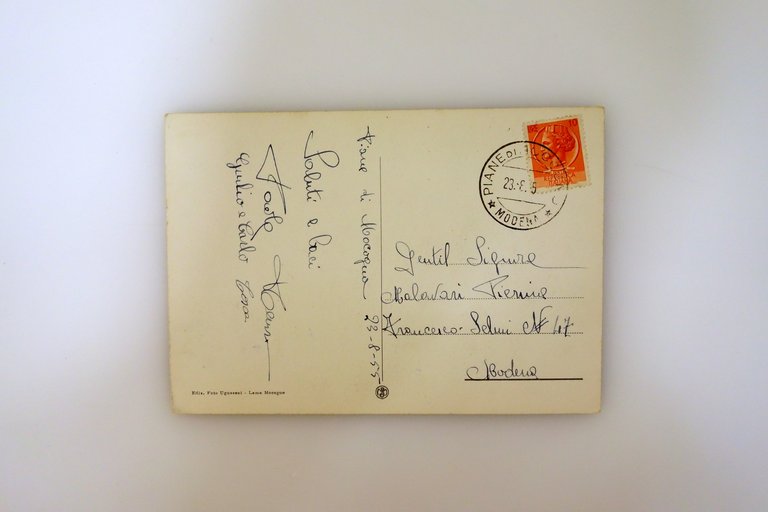 Piane di Mocogno 23-8-55
Saluti e baci
Paolo
Giulio e Carlo
PIANE DI
23.-8.
MODENA
Gentil Signora
Malavasi Pierina
Francesco Selmi N 47
Modena
Ediz. Foto Ugonessi - Lama Mocogno